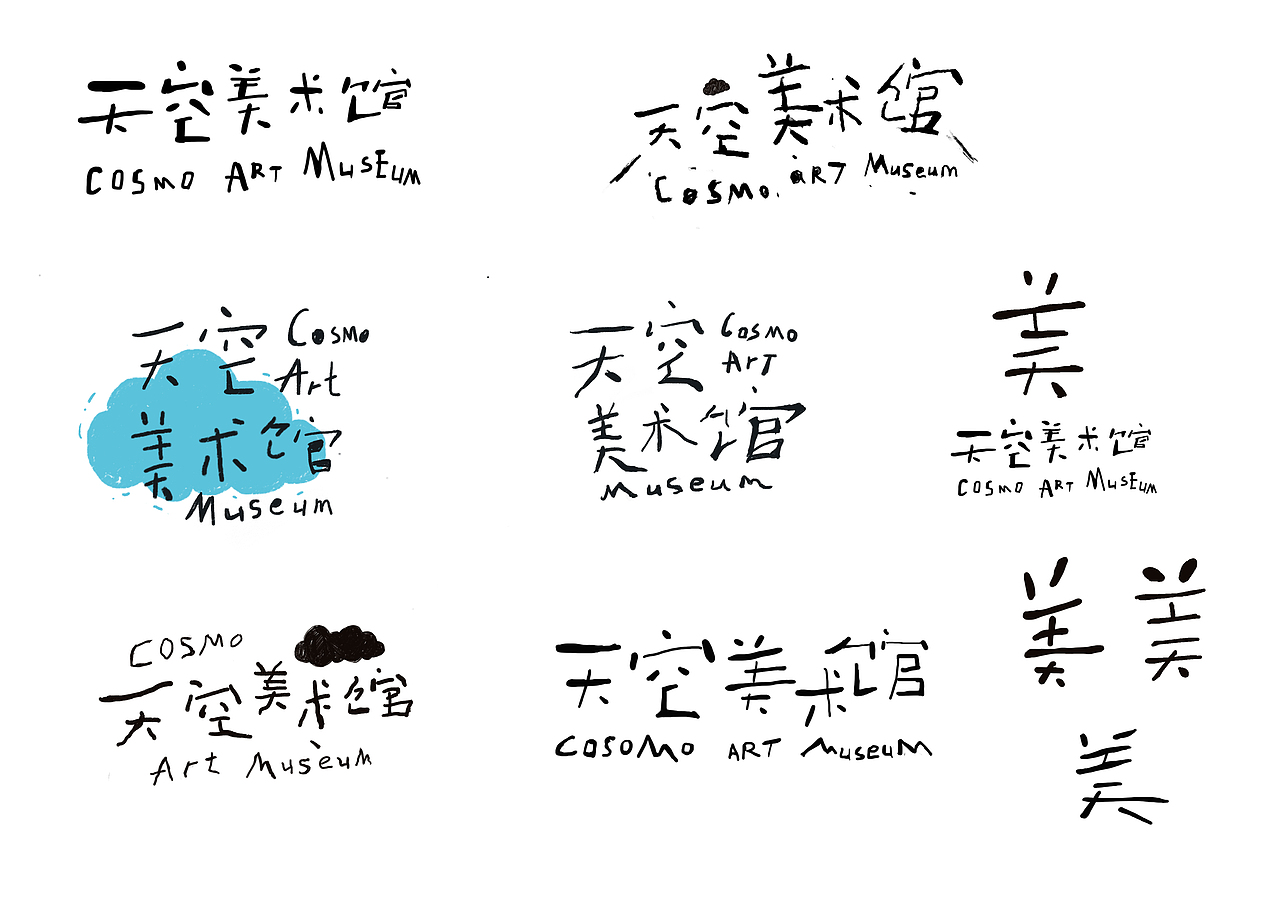 天空美术馆
COSMO ART MUSEUM
天空美术馆
COSMO. aRT Museum
天空 Cosmo
Art
美术馆
Museum
天空 Cosmo
ArT
美术馆
Museum
美
天空美术馆
COSMO ART MUSEUM
COSMO
天空美术馆
Art MuseuM
天空美术馆
COSOMO ART MuseuM
美
美
美